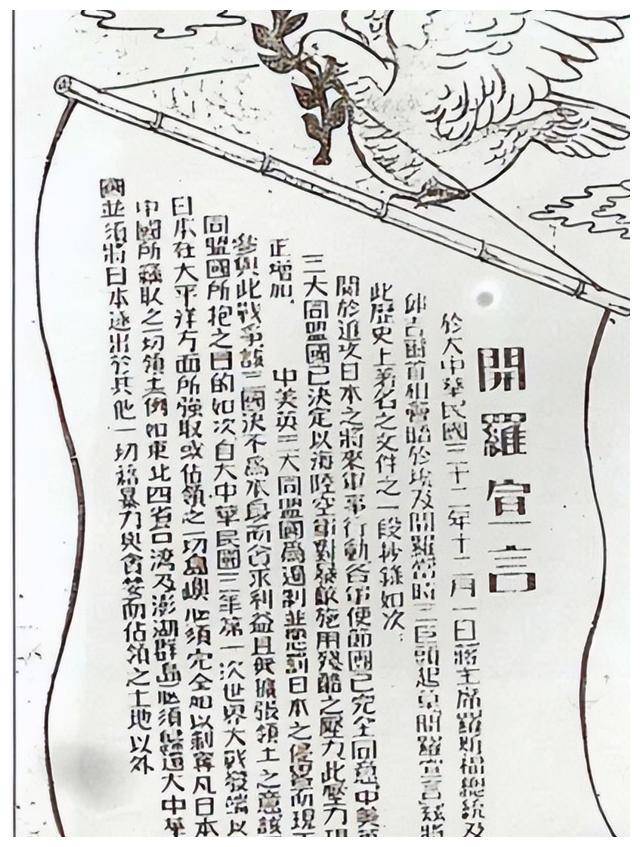 開羅宣言
於大中華民國三十二年十二月一日蔣主席羅斯福總統及
邱吉爾首相會晤於埃及開羅當時三巨頭起草開羅宣言茲將
此歷史上著名之文件之一段抄錄如次:
關於進攻日本之將來軍事行動各軍使節團已完全同意中美英
三大同盟國已決定以海陸空軍對暴敵施用殘酷之壓力此壓力現
正增加. 中美英三大同盟國為遏制並懲罰日本之侵略而現正
參與此戰爭該三國決不為本身而貪求利益且無擴張領土之意該
同盟國所抱之目的如次自大中華民國三年第一次世界大戰發端以
日本在太平洋方面所強取或佔領之一切島嶼必須完全加以剝奪凡日本
中國所竊取之一切領土例如東北四省台湾及澎湖群島必須歸還大中華
國並須將日本逐出於其他一切藉暴力與貪婪而佔領之土地以外